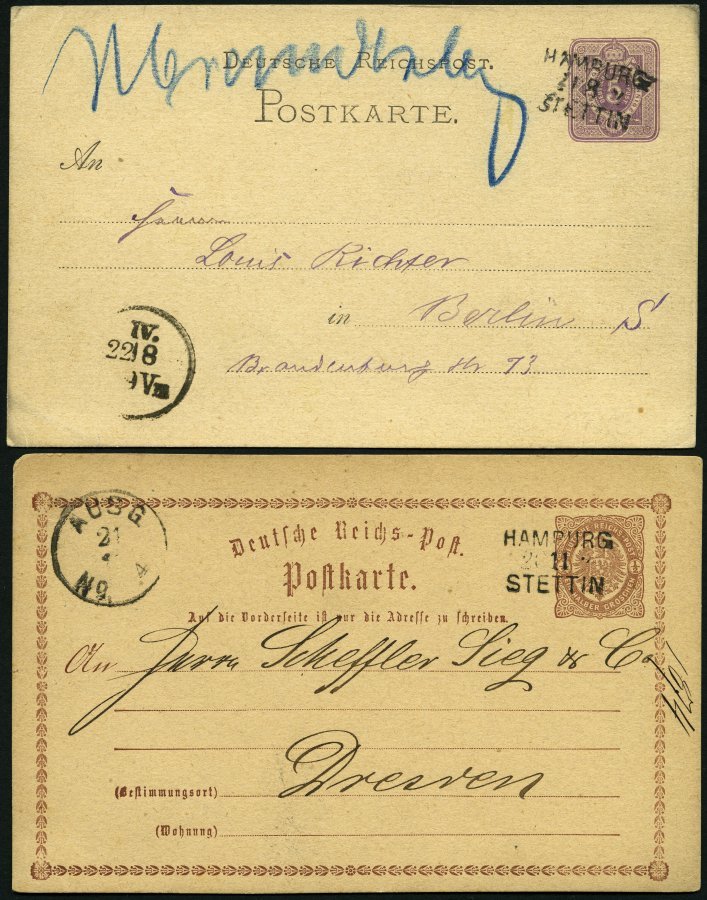 DEUTSCHE REICHSPOST.
POSTKARTE.
HAMBURG
STETTIN
An
Herrn
Louis Richter
in Berlin S
Brandenburg Str 73
IV.
22 8
9 Vm
AUSG
21
No. 4
Deutsche Reichs-Post.
Postkarte.
HAMBURG
11
STETTIN
HALBER GROSCHEN
Auf die Vorderseite ist nur die Adresse zu schreiben.
An Herrn Scheffler Sieg & Co
Dresden
(Bestimmungsort)
(Wohnung)